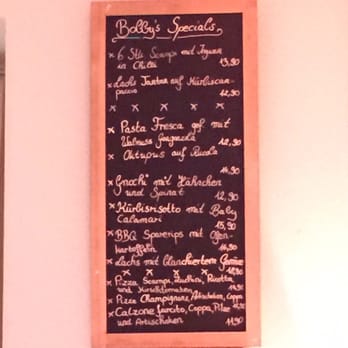 Bobby's Specials
x 6 Stk Scampi mit Ingwer
in Chilli 13,90
x Lachs Tartar auf Kürbiscar-
paccio 12,90
x x x x x
x Pasta Fresca gef mit
Walnuss Gorgonzola 12,90
x Oktupus auf Rucola
x Gnochi mit Hähnchen
und Spinat 12,90
x Kürbisrisotto mit Baby
Calamari 15,90
x BBQ Spareribs mit Ofen-
kartoffeln
x Lachs mit blanchiertem Gemüse
x x x x x
x Pizza Scampi, Zucchini, Ricotta
und Kirschtomaten
x Pizza Champignons, Artischoken, Coppa
x Calzone, Coppa, Pilze
und Artischoken 11,90